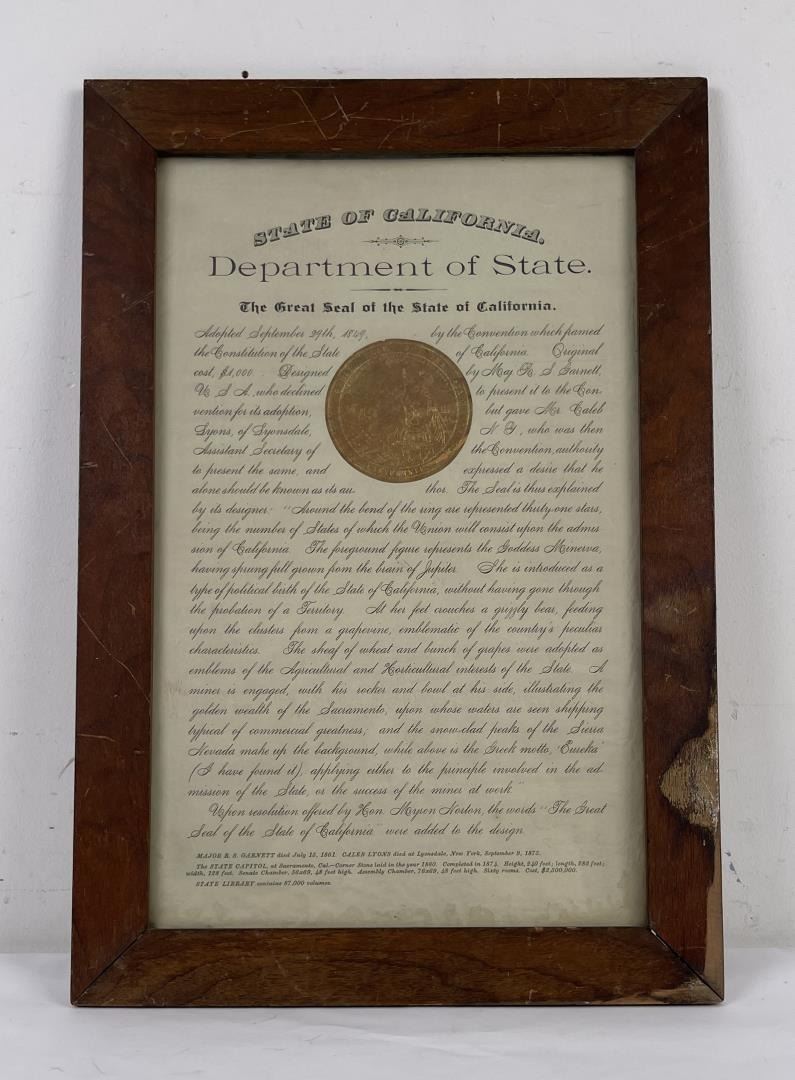 STATE OF CALIFORNIA.
Department of State.
The Great Seal of the State of California.
Adopted September 29th, 1849, by the Convention which framed
the Constitution of the State of California. Original
cost, $1,000. Designed by Maj R. S. Garnett,
U. S. A., who declined to present it to the Con-
vention for its adoption, but gave Mr. Caleb
Lyons, of Lyonsdale, N. Y., who was then
Assistant Secretary of the Convention, authority
to present the same, and expressed a desire that he
alone should be known as its au- thor. The Seal is thus explained
by its designer: "Around the bend of the ring are represented thirty-one stars,
being the number of States of which the Union will consist upon the admis-
sion of California. The foreground figure represents the Goddess Minerva,
having sprung full grown from the brain of Jupiter. She is introduced as a
type of political birth of the State of California, without having gone through
the probation of a Territory. At her feet crouches a grizzly bear, feeding
upon the clusters from a grapevine, emblematic of the country's peculiar
characteristics. The sheaf of wheat and bunch of grapes were adopted as
emblems of the Agricultural and Horticultural interests of the State. A
miner is engaged, with his rocker and bowl at his side, illustrating the
golden wealth of the Sacramento, upon whose waters are seen shipping
typical of commercial greatness; and the snow-clad peaks of the Sierra
Nevada make up the background, while above is the Greek motto, 'Eureka'
(I have found it), applying either to the principle involved in the ad-
mission of the State, or the success of the miner at work."
Upon resolution offered by Hon. Myron Norton, the words "The Great
Seal of the State of California" were added to the design.
MAJOR R. S. GARNETT died July 13, 1861. CALEB LYONS died at Lyonsdale, New York, September 8, 1875.
The STATE CAPITOL, at Sacramento, Cal.—Corner Stone laid in the year 1860. Completed in 1874. Height, 240 feet; length, 282 feet;
width, 128 feet. Senate Chamber, 56x69, 48 feet high. Assembly Chamber, 76x69, 48 feet high. Sixty rooms. Cost, $2,500,000.
STATE LIBRARY contains 87,000 volumes.